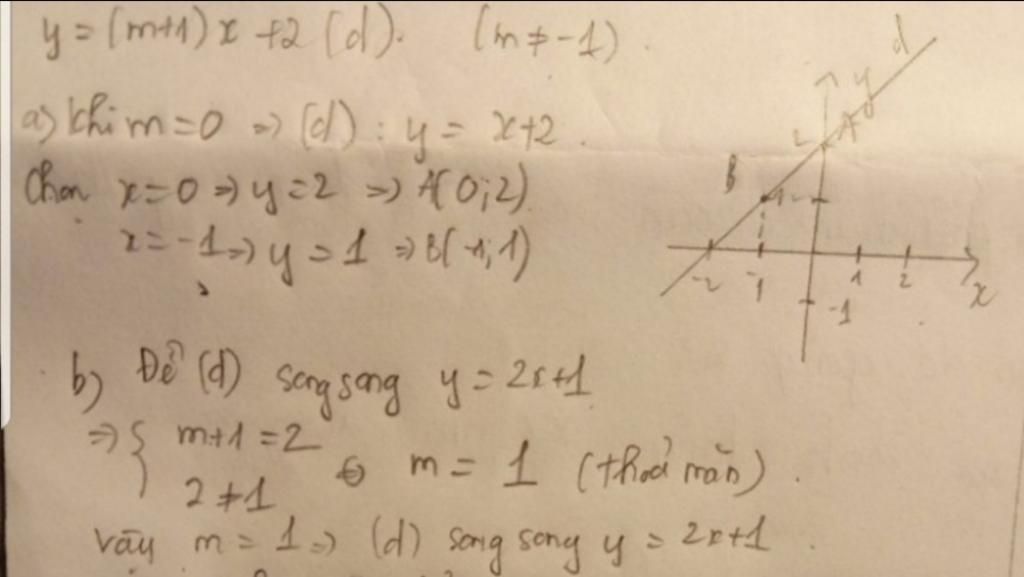 y = (m+1)x + 2 (d). (m ≠ -1).
a) khi m = 0 => (d) : y = x+2.
Chọn x = 0 => y = 2 => A(0;2)
x = -1 => y = 1 => B(-1;1)
d
y
A
2
B
1
-2 -1 1 2
x
-1
b) Để (d) song song y = 2x+1
=> { m+1 = 2
2 ≠ 1
⇔ m = 1 (thoả mãn).
vậy m = 1 => (d) song song y = 2x+1.